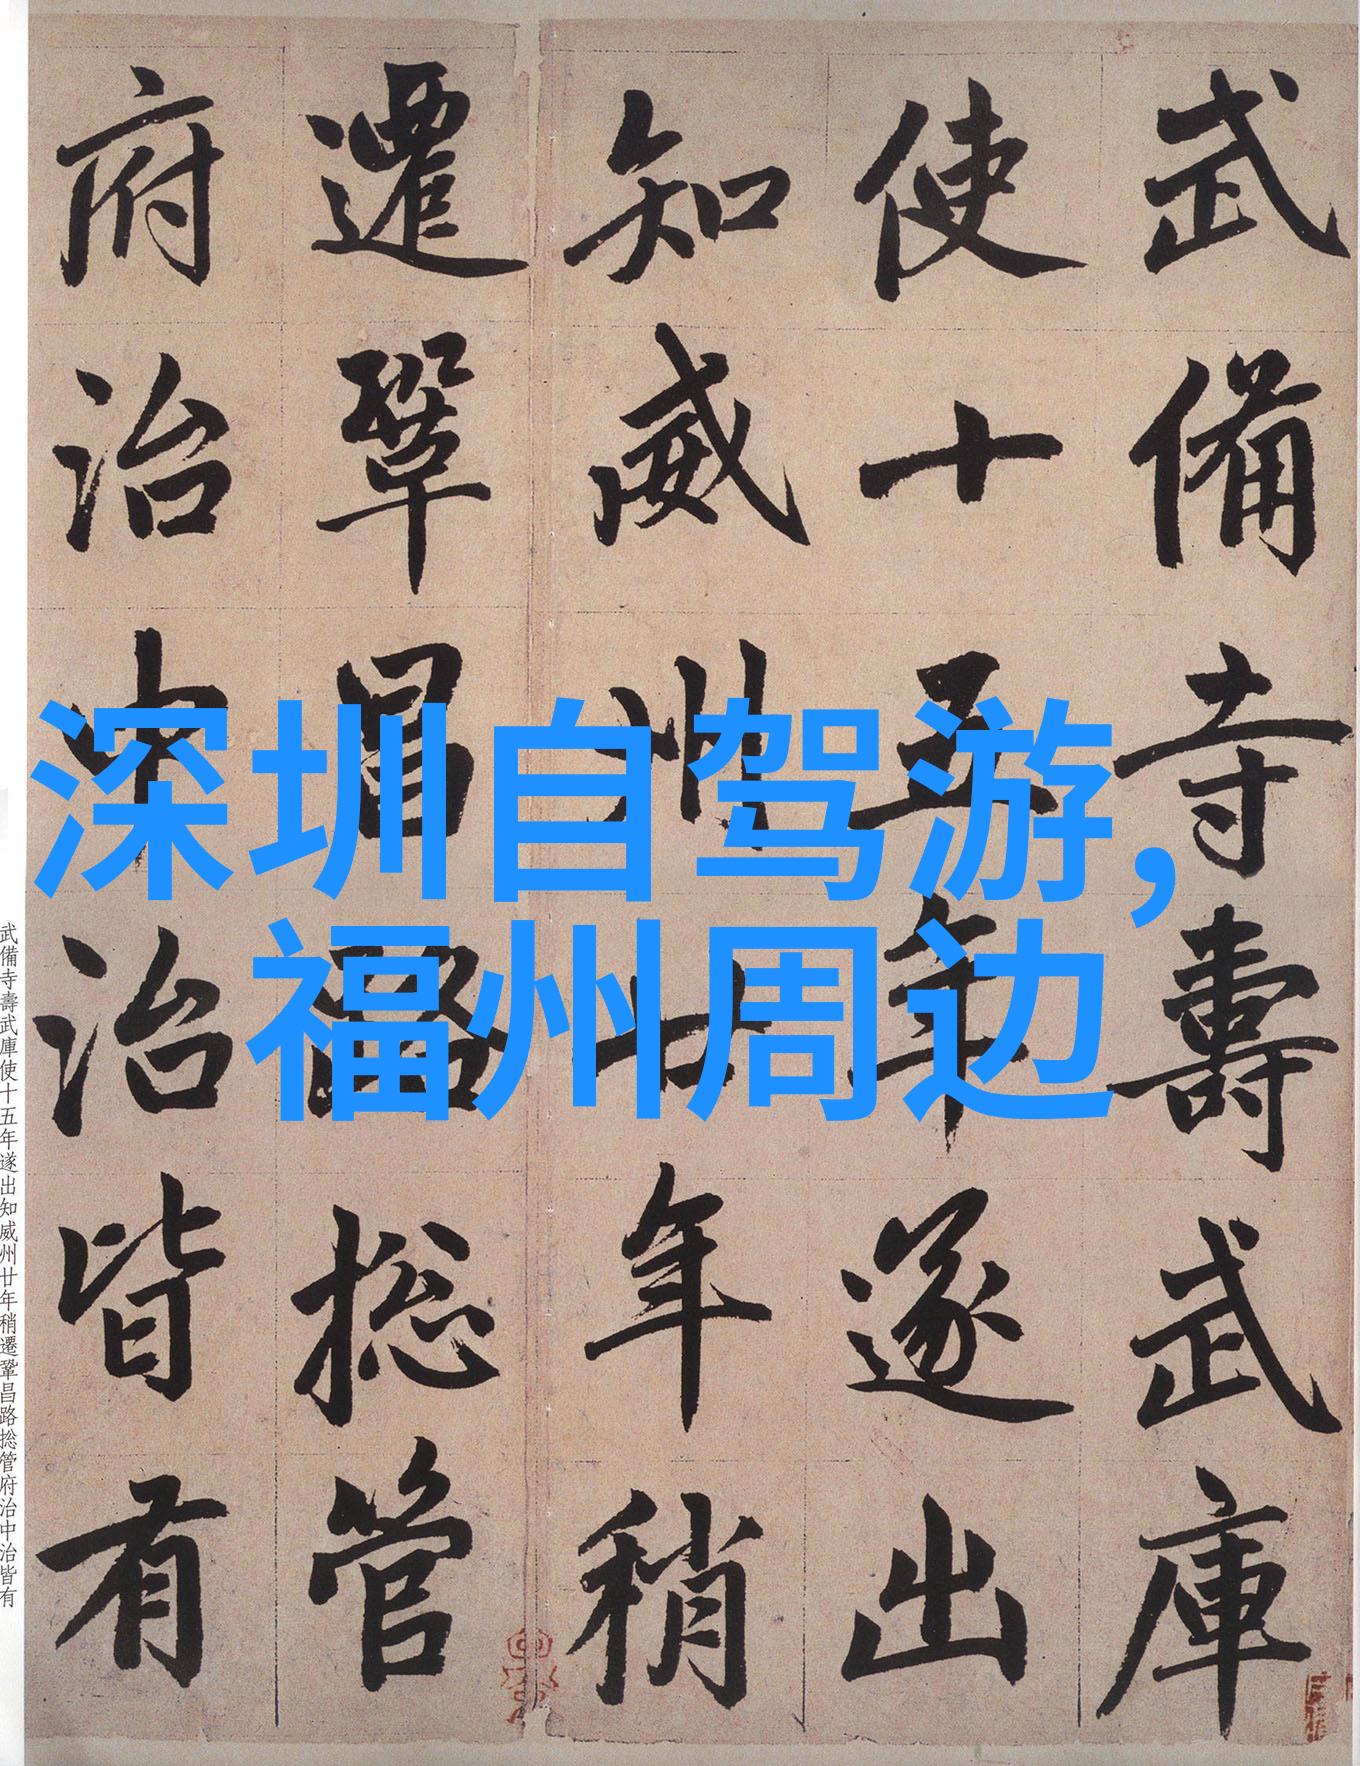 武備寺壽武庫
使十五年遂出
知威州廿年稍
遷鞏昌路捴管
府治中治皆有
深圳自驾游,
福州周边
武備寺壽武庫使十五年遂出知威州廿年稍遷鞏昌路捴管府治中治皆有